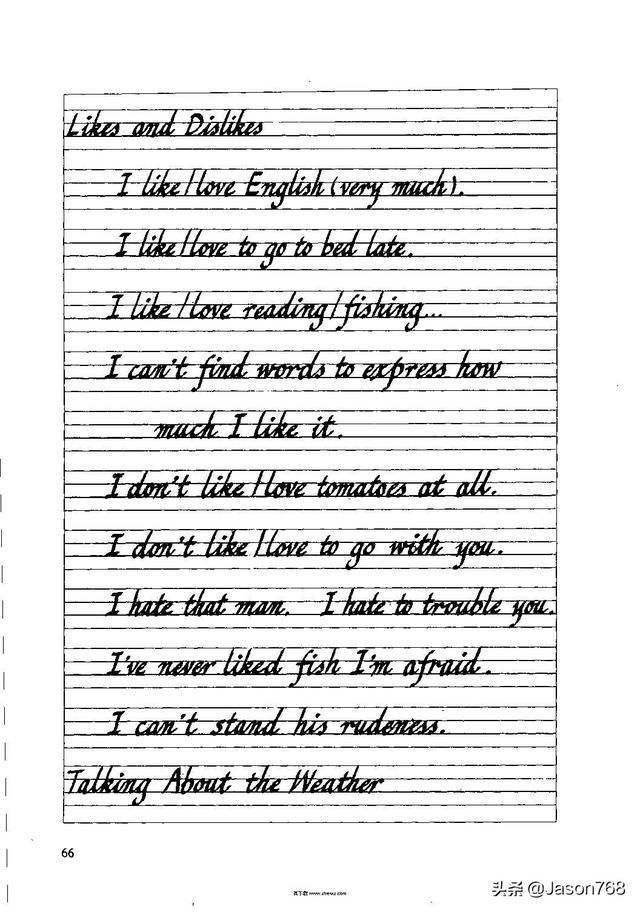 Likes and Dislikes
I like/love English (very much).
I like/love to go to bed late.
I like/love reading/fishing...
I can't find words to express how
much I like it.
I don't like/love tomatoes at all.
I don't like/love to go with you.
I hate that man. I hate to trouble you.
I've never liked fish I'm afraid.
I can't stand his rudeness.
Talking About the Weather
66
头条 @Jason768